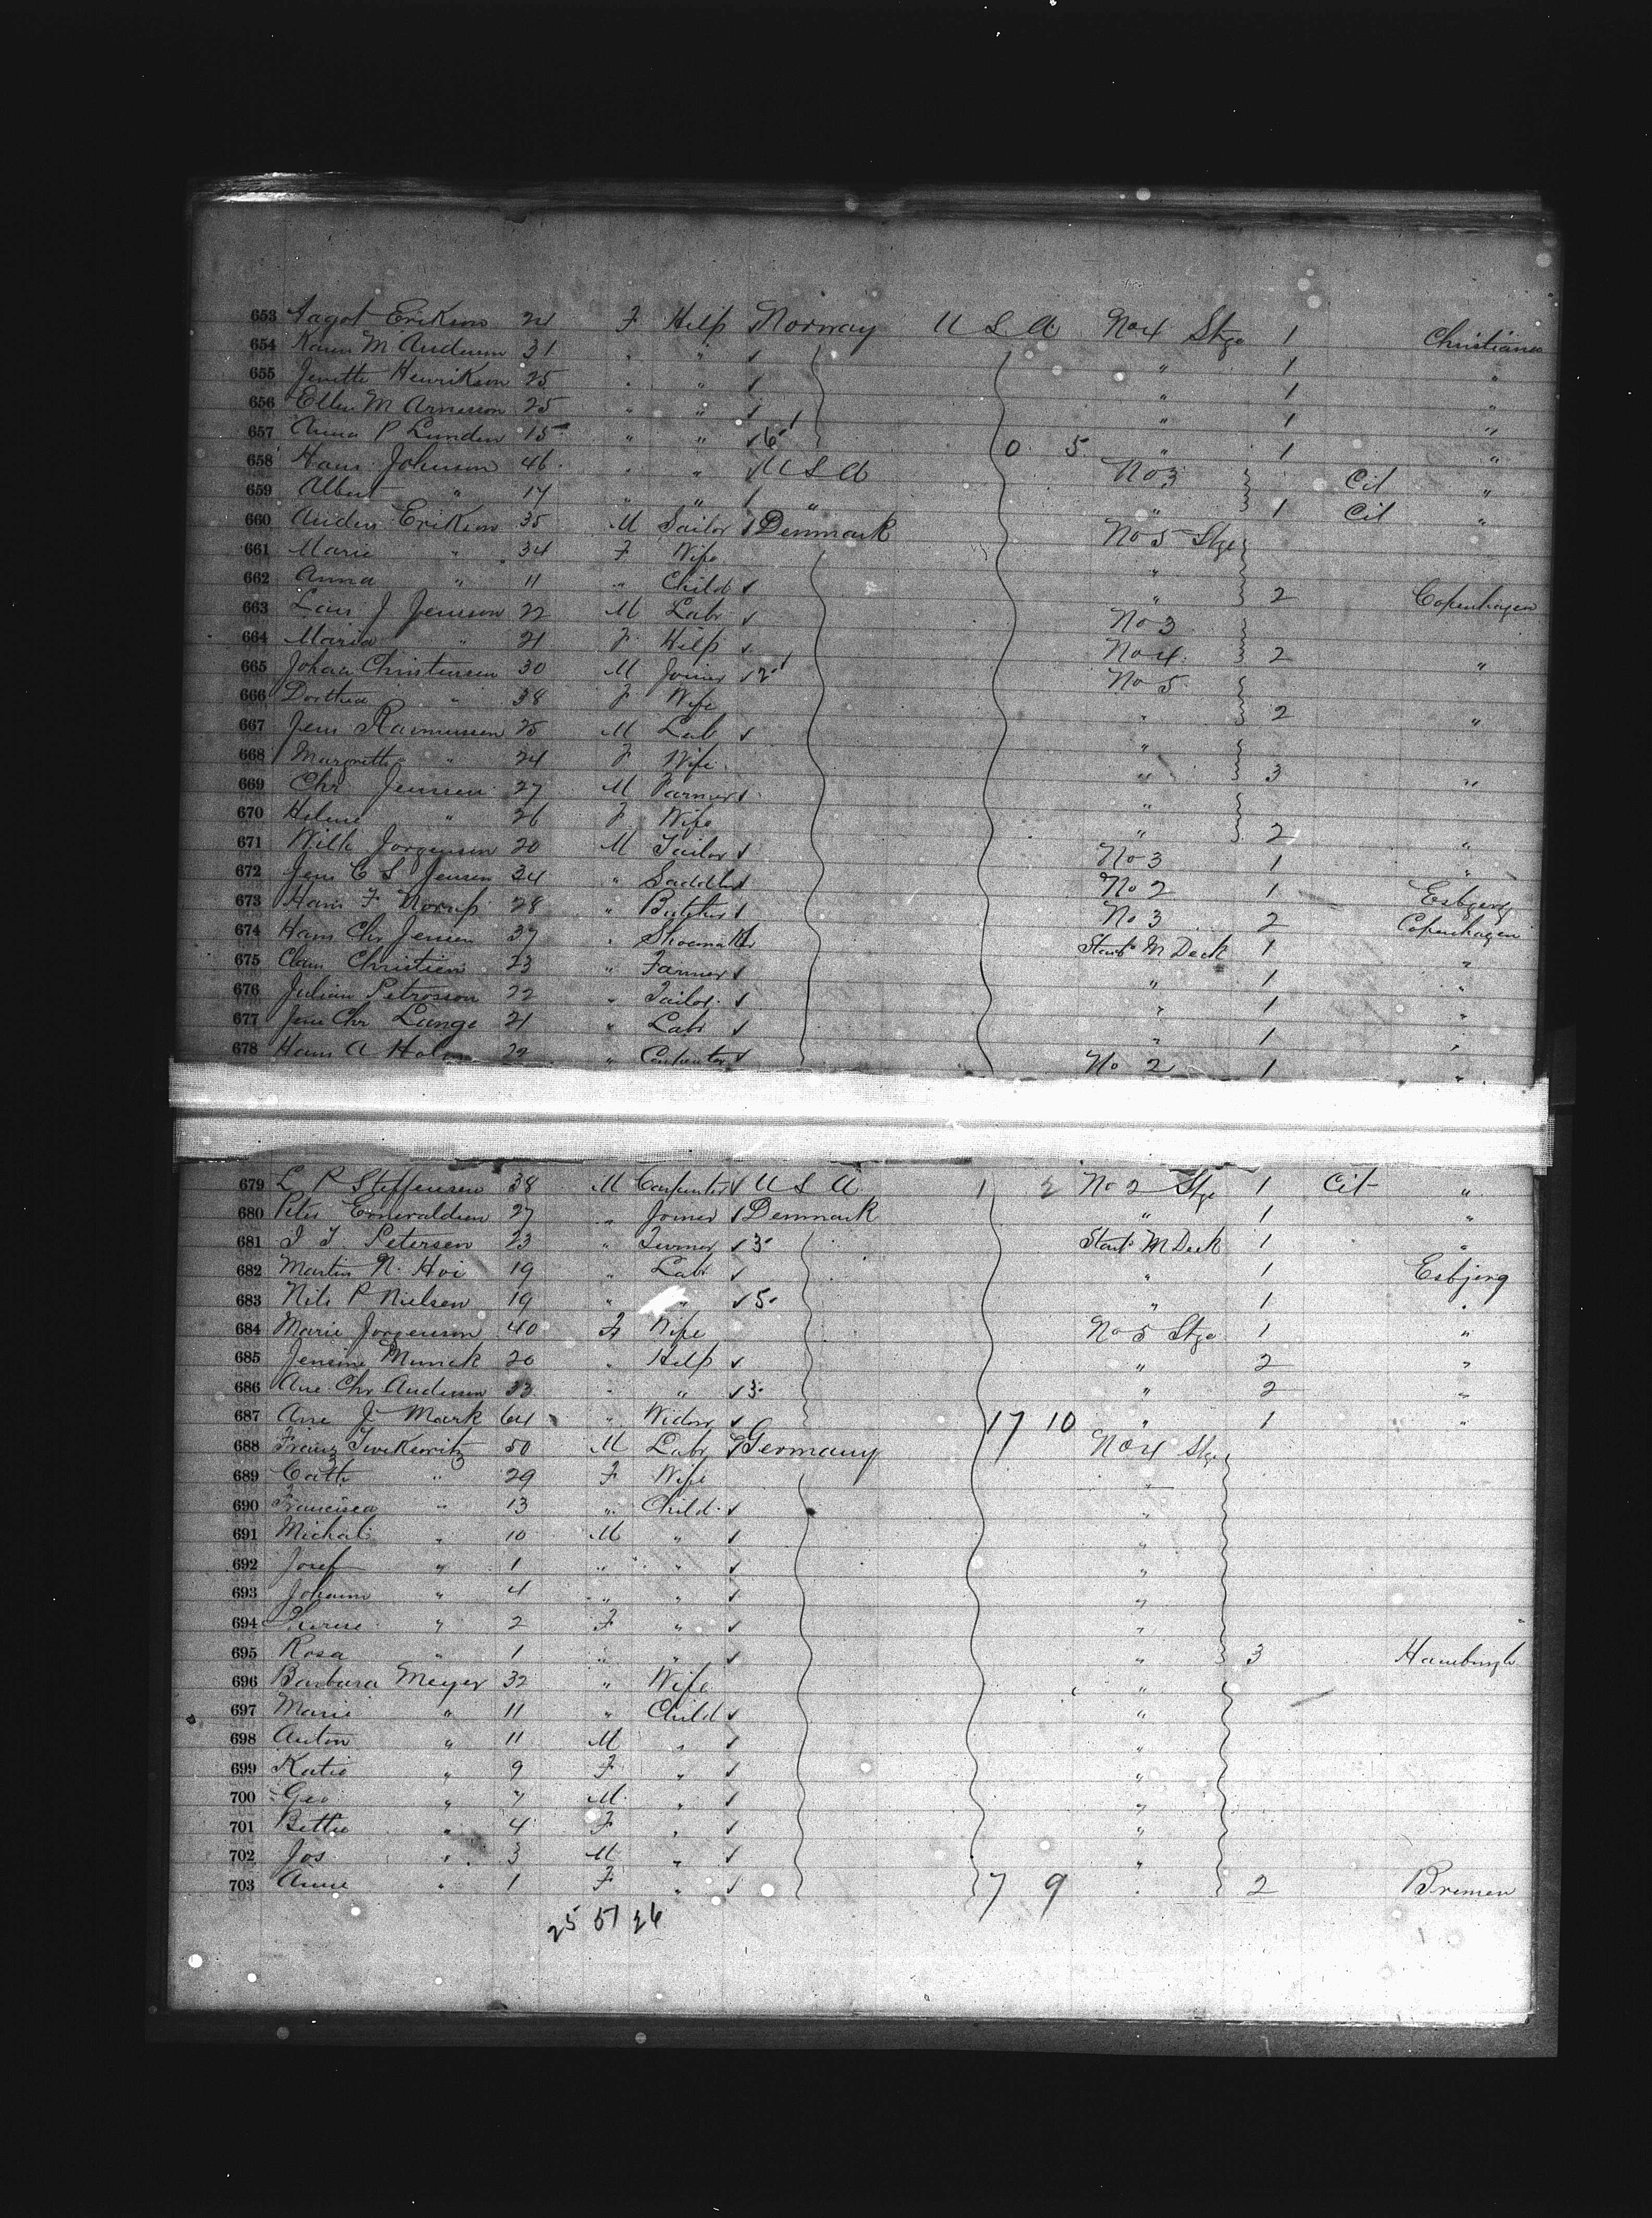 653 Aagot Erikson 24 F Help Norway U S A No 4 Stge 1 Christiania
654 Karen M Anderson 31 " " ✓ " 1 "
655 Jenette Henrikson 25 " " ✓ " 1 "
656 Ellen M Arneson 25 " " ✓ " 1 "
657 Anna P Lunden 15 " " ✓ 6 0 5 " 1 "
658 Hans Johnson 46 " " ✓ U S A No 3 Cit "
659 Albert " 17 " " ✓ " " 1 Cit "
660 Anders Erikson 35 M Sailor ✓ Denmark No 5 Stge
661 Marie " 34 F Wife "
662 Anna " 11 " Child ✓ " 2 Copenhagen
663 Lars J Jensson 22 M Labr ✓ No 3
664 Maria " 21 F Help ✓ No 4 2 "
665 Johan Christensen 30 M Joiner ✓ 2 No 5
666 Dorthea " 38 F Wife " 2 "
667 Jens Rasmussen 25 M Lab ✓ "
668 Margrethe " 24 F Wife " 3 "
669 Chr Jensen 27 M Farmer ✓ "
670 Helene " 26 F Wife " 2 "
671 Wilh Jorgensen 20 M Tailor ✓ No 3 1 "
672 Jens C S Jensen 34 " Saddler ✓ No 2 1 Esbjerg
673 Hans F Norup 28 " Butcher ✓ No 3 2 Copenhagen
674 Hans Chr Jensen 37 " Shoemaker Starb M Deck 1 "
675 Claus Christien 23 " Farmer ✓ " 1 "
676 Julian Petrosson 22 " Tailor ✓ " 1 "
677 Jens Chr Lange 21 " Labr ✓ " 1 "
678 Hans A Holm 22 " Carpenter ✓ No 2 1 "
679 L P Steffensen 38 M Carpenter ✓ U S A 1 2 No 2 Stge 1 Cit "
680 Peter Esmeraldsen 27 " Joiner ✓ Denmark " 1 "
681 J J Petersen 23 " Turner ✓ 3 Starb M Deck 1 "
682 Martin N Hoi 19 " Labr ✓ " 1 Esbjerg
683 Nils P Nielsen 19 " " ✓ 5 " 1 "
684 Marie Jorgenson 40 F Wife No 5 Stge 1 "
685 Jensine Munck 20 " Help ✓ " 2 "
686 Ane Chr Anderson 33 " " ✓ 3 " 2 "
687 Ane J Mark 64 " Widow ✓ 17 10 " 1 "
688 Franz 50 M Labr ✓ Germany No 4 Stge
689 Cath " 29 F Wife "
690 Francisca " 13 " Child ✓ "
691 Michal " 10 M " ✓ "
692 Josef " 1 " " ✓ "
693 Johann " 4 " " ✓ "
694 " 2 F " ✓ "
695 Rosa " 1 " " ✓ " 3 Hamburgh
696 Barbara Meyer 32 " Wife "
697 Marie " 11 " Child ✓ "
698 Anton " 11 M " ✓ "
699 Katie " 9 F " ✓ "
700 Geo " 7 M " ✓ "
701 Bettie " 4 F " ✓ "
702 Jos " 3 M " ✓ "
703 Anne " 1 F " ✓ 7 9 " 2 Bremen
25 51 26